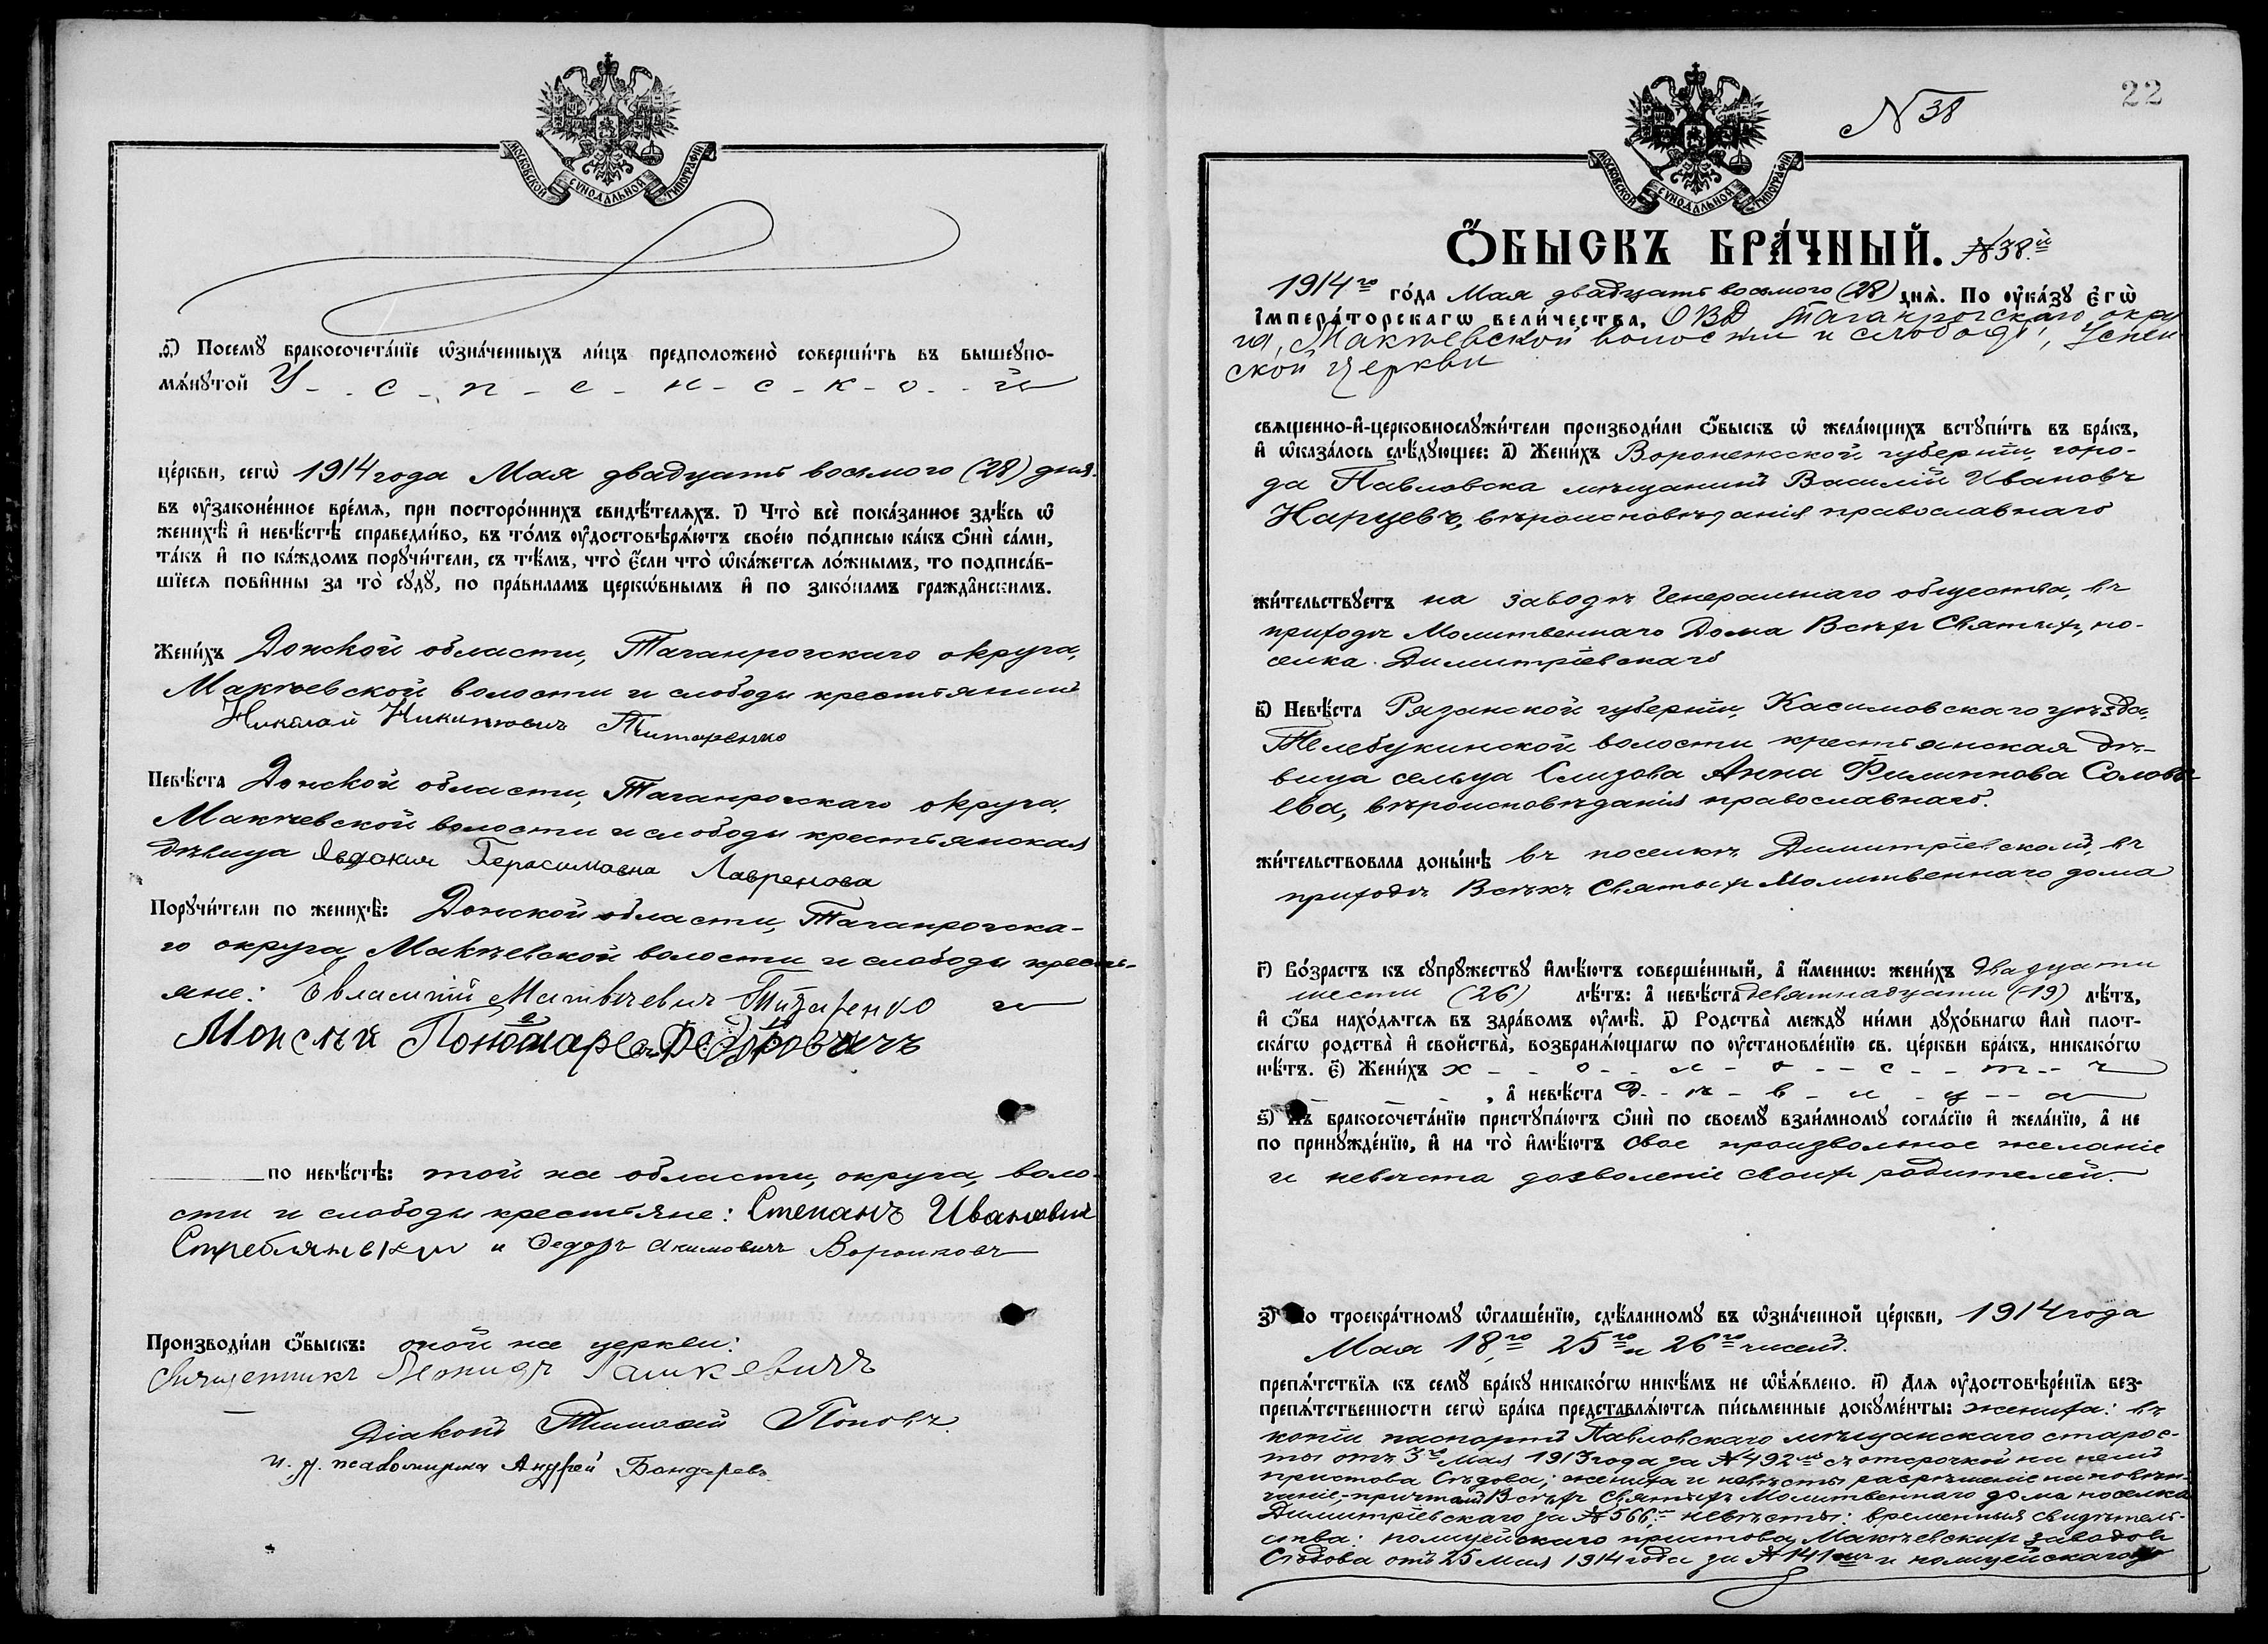 МОСКОВСКОЙ СѴНОДАЛЬНОЙ ТИПОГРАФІИ
ѳ҃) Посемꙋ бракосочета́нїе ѡ҆зна́ченныхъ ли́цъ предположено̀ соверши́ть въ вышеупо-
мѧ́нꙋтой У - с - п - е - н - с - к - о - й
це́ркви, сегѡ̀ 1914 года Мая двадцать восьмого (28) дня.
въ ᲂу҆законе́нное вре́мѧ, при посторо́ннихъ свидѣ́телѧхъ. і҃) Что̀ всѐ пока́занное здѣ́сь ѡ҆
женихѣ̀ и҆ невѣ́стѣ справедли́во, въ то́мъ ᲂу҆достовѣрѧ́ютъ свое́ю по́дписью ка́къ ѻ҆нѝ са́ми,
та́къ и҆ по ка́ждомъ порꙋчи́тели, съ тѣ́мъ, что̀ є҆́сли что̀ ѡ҆ка́жетсѧ ло́жнымъ, то подписа́в-
шїесѧ пови́нны за то̀ сꙋдꙋ̀, по пра́виламъ церко́внымъ и҆ по зако́намъ гражда́нскимъ.
Жени́хъ Донской области, Таганрогскаго округа,
Макѣевской волости и слободы крестьянинъ
Николай Никитовичъ Титаренко
Невѣ́ста Донской области, Таганрогскаго округа,
Макѣевской волости и слободы крестьянская
дѣвица Явдокия Герасимовна Лавренова
Порꙋчи́тели по женихѣ̀: Донской области, Таганрогска-
го округа, Макѣевской волости и слободы кресть-
яне: Евлампій Матвѣевичъ Титаренко и
Моисѣй
по невѣ́стѣ: той же области, округа, воло-
сти и слободы крестьяне: Степанъ Ивановичъ
и Федоръ Акимовичъ Воронковъ
Производи́ли ѻ҆́быскъ: оной же церкви:
Священникъ Леонидъ
Діаконъ Тимофей Поповъ.
и. д. псаломщика Андрей Бондаревъ
22
N 38
МОСКОВСКОЙ СѴНОДАЛЬНОЙ ТИПОГРАФІИ
Ѻ҆́БЫСКЪ БРА́ЧНЫЙ. №38.й
1914го го́да Мая двадцать восьмого (28) днѧ̀. По ᲂу҆ка́зꙋ Є҆гѡ̀
І҆мпера́торскагѡ вели́чества, ОВД Таганрогскаго окру
га, Макѣевской волости и слободы, Успен
ской церкви
свѧщенно-и҆-церковнослꙋжи́тели производи́ли ѻ҆́быскъ ѡ҆ жела́ющихъ встꙋпи́ть въ бра́къ,
и҆ ѡ҆каза́лось слѣ́дꙋющее: а҃) Жени́хъ Воронежской губерніи, горо-
да Павловска мѣщанинъ Василій Ивановъ
Нарцевъ, вѣроисповѣданія православнаго
жи́тельствꙋетъ на заводѣ Генеральнаго общества, въ
приходѣ Молитвеннаго Дома Всѣхъ Святыхъ, по-
селка Димитріевскаго
в҃) Невѣ́ста Рязанской губерніи, Касимовскаго уѣзда,
Телебукинской волости крестьянская дѣ-
вица сельца Слизова Анна Филиппова Соловь-
ева, вѣроисповѣданія православнаго.
жи́тельствовала доны́нѣ въ поселкѣ Димитріевскомъ, въ
приходѣ Всѣхъ Святыхъ Молитвеннаго дома
г҃) Во́зрастъ къ сꙋпрꙋжествꙋ и҆мѣ́ютъ соверше́нный, а҆ и҆́меннѡ: жени́хъ двадцати
шести (26) лѣ́тъ: а҆ невѣ́ста девятнадцати (19) лѣ́тъ,
и҆ ѻ҆́ба нахо́дѧтсѧ въ здра́вомъ ᲂу҆мѣ̀. д҃) Родства̀ междꙋ ни́ми дꙋхо́внагѡ и҆лѝ плот-
ска́гѡ родства̀ и҆ сво́йства̀, возбранѧ́ющагѡ по ᲂу҆становле́нїю св. це́ркви бра́къ, никако́гѡ
нѣ́тъ. є҃) Жени́хъ х - о - л - о - с - т - ъ
, а҆ невѣ́ста д - ѣ - в - и - ц - а
ѕ҃) Къ бракосочета́нїю пристꙋпа́ютъ ѻ҆нѝ по своемꙋ̀ взаи́мномꙋ согла́сїю и҆ жела́нїю, а҆ не
по принꙋжде́нїю, и҆ на то̀ и҆мѣ́ютъ свое произвольное желаніе
и невѣста дозволеніе своихъ родителей.
з҃) По троекра́тномꙋ ѡ҆глаше́нїю, сдѣ́ланномꙋ въ ѡ҆зна́ченной це́ркви, 1914 года
Мая 18,го 25го и 26го чиселъ.
препѧ́тствїѧ къ семꙋ̀ бра́кꙋ никако́гѡ никѣ́мъ не ѡ҆б̾ѧ́влено. и҃) Для ᲂу҆достовѣре́нїѧ без-
препѧ́тственности сегѡ̀ бра́ка представлѧ́ютсѧ пи́сьменные докꙋме́нты: жениха: въ
копіи паспортъ Павловскаго мѣщанскаго старос-
ты отъ 3го Мая 1913 года за №492 съ отсрочкой на немъ
пристава Сѣдова; жениха и невѣсты разрѣшеніе на повѣн-
чаніе, - причтомъ Всѣхъ Святыхъ Молитвеннаго дома поселка
Димитріевскаго за №566 невѣсты: временныя свидѣтель-
ства: полицейскаго пристава Макѣевскихъ заводовъ
Сѣдова отъ 25 Мая 1914 года за №141 и полицейскаго